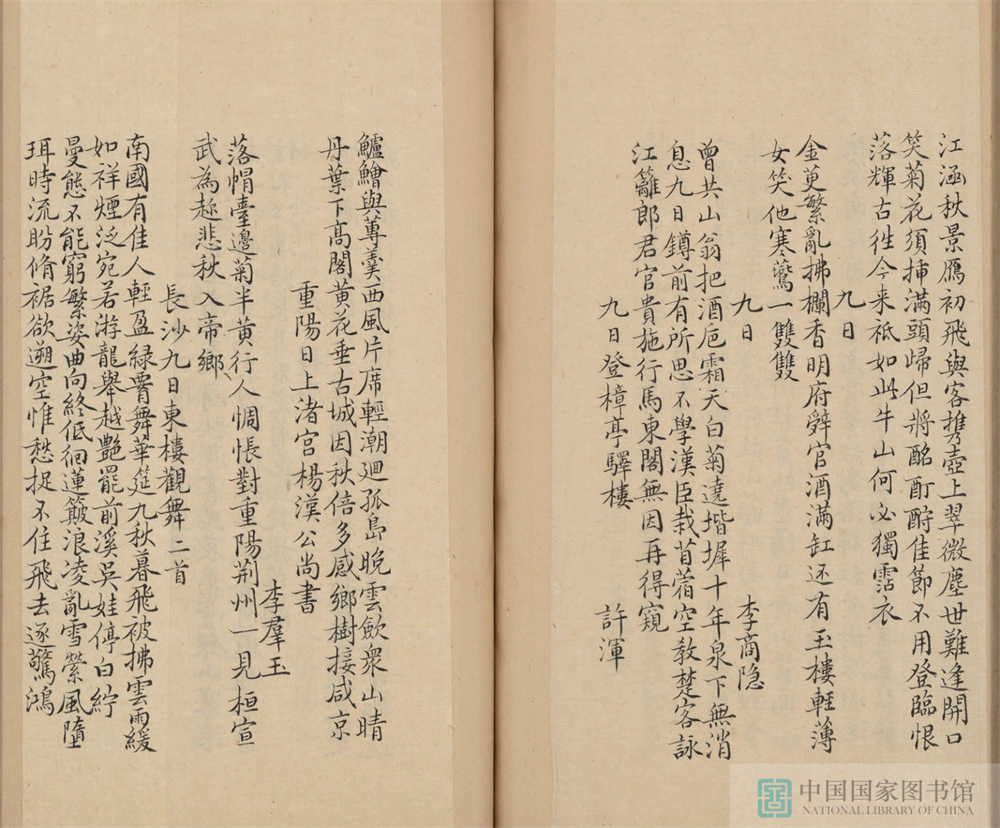 江涵秋景鴈初飛與客携壺上翠微塵世難逢開口
笑菊花須揷滿頭歸但將酩酊酧佳節不用登臨恨
落輝古徃今来祇如此牛山何必獨霑衣
九日
金英繁亂拂欄香明府辤官酒滿缸还有玉樓輕薄
女笑他寒鷰一雙雙
九日
李商隐
曾共山翁把酒巵霜天白菊遶堦墀十年泉下無消
息九日罇前有所思不學漢臣栽苜蓿空教楚客詠
江籬郎君官貴施行馬東閣無因再得窺
九日登樟亭驛樓
許渾
鱸鱠與蓴羹西風片席輕潮廻孤島晚雲歛衆山晴
丹葉下高閣黄花垂古城因秋倍多感鄉樹接咸京
重陽日上渚宮楊漢公尚書
李羣玉
落帽臺邊菊半黄行人惆悵對重陽荆州一見桓宣
武為趂悲秋入帝鄉
長沙九日東樓觀舞二首
南國有佳人輕盈緑霄舞華筵九秋暮飛被拂雲雨緩
如祥煙泛宛若游龍舉越艷罷前溪吳娃停白紵
曼態不能窮繁姿曲向終低徊蓮簸浪凌亂雪縈風墮
珥時流盻脩裾欲遡空惟愁捉不住飛去逐驚鴻
中国国家图书馆
NATIONAL LIBRARY OF CHINA